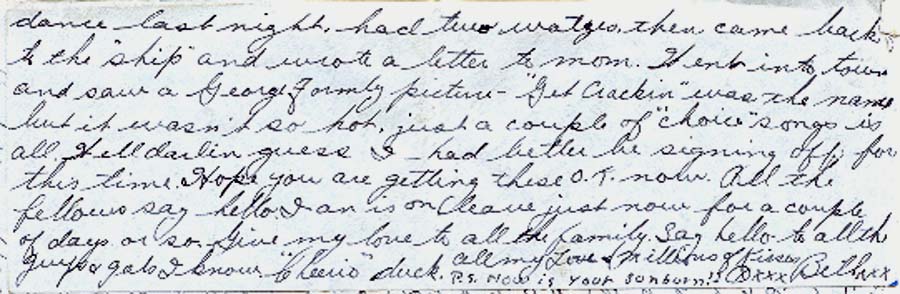 dance last night, had two waltzes, then came back
to the "ship" and wrote a letter to mom. Went into town
and saw a George Formby picture - "Get Crackin" was the name
but it wasn't so hot, just a couple of "choice" songs is
all. Well darlin guess I had better be signing off, for
this time. Hope you are getting these O.K. now. All the
fellows say hello. Ian is on leave just now for a couple
of days or so. Give my love to all the family. Say hello to all the
guys & gals I know. "Cheerio" duck. all my Love & millions of kisses
P.S. How is your sunburn!! xxx